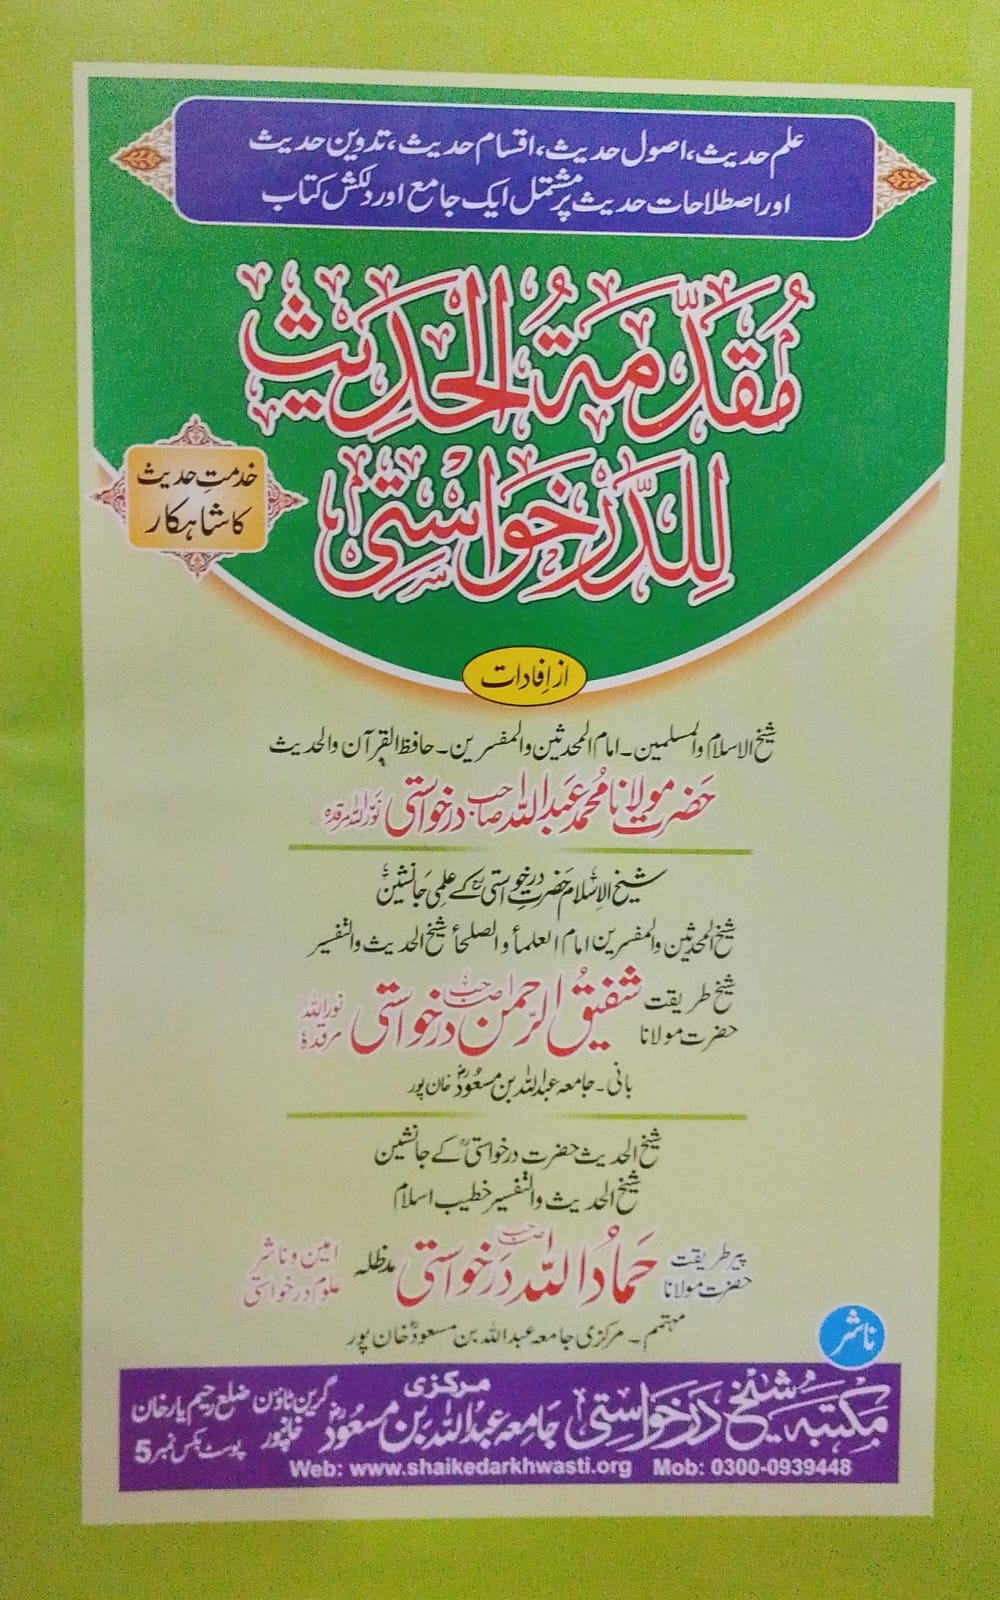 علم حدیث، اصول حدیث، اقسام حدیث، تدوین حدیث
اور اصطلاحات حدیث پر مشتمل ایک جامع اور دلکش کتاب
مُقَدِّمَةُ الْحَدِيْث
لِلدَّرْخَوَاسْتِی
خدمتِ حدیث
کا شاہکار
از اِفادات
شیخ الاسلام والمسلمین۔ امام المحدثین والمفسرین۔ حافظ القرآن والحدیث
حضرت مولانا محمد عبداللہ صاحب درخواستی نوراللہ مرقدہ
شیخ الاسلام حضرت درخواستیؒ کے علمی جانشین
شیخ المحدثین والمفسرین امام العلمأ والصلحأ شیخ الحدیث والتفسیر
شیخ طریقت حضرت مولانا شفیق الرحمن صاحب درخواستی نوراللہ مرقدہٗ
بانی۔ جامعہ عبداللہ بن مسعودؓ خان پور
شیخ الحدیث حضرت درخواستیؒ کے جانشین
شیخ الحدیث والتفسیر خطیب اسلام
پیر طریقت حضرت مولانا حماد اللہ صاحب درخواستی مدظلہ امین و ناشر علوم درخواستی
مہتمم۔ مرکزی جامعہ عبداللہ بن مسعودؓ خان پور
ناشر
مکتبہ شیخ درخواستی مرکزی جامعہ عبداللہ بن مسعودؓ گرین ٹاؤن خانپور ضلع رحیم یار خان پوسٹ بکس نمبر 5
Web: www.shaikedarkhwasti.org Mob: 0300-0939448